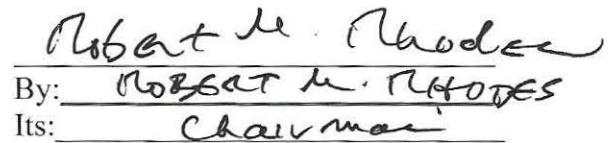 Robert M. Rhodes
By: ROBERT M. RHODES
Its: Chairman